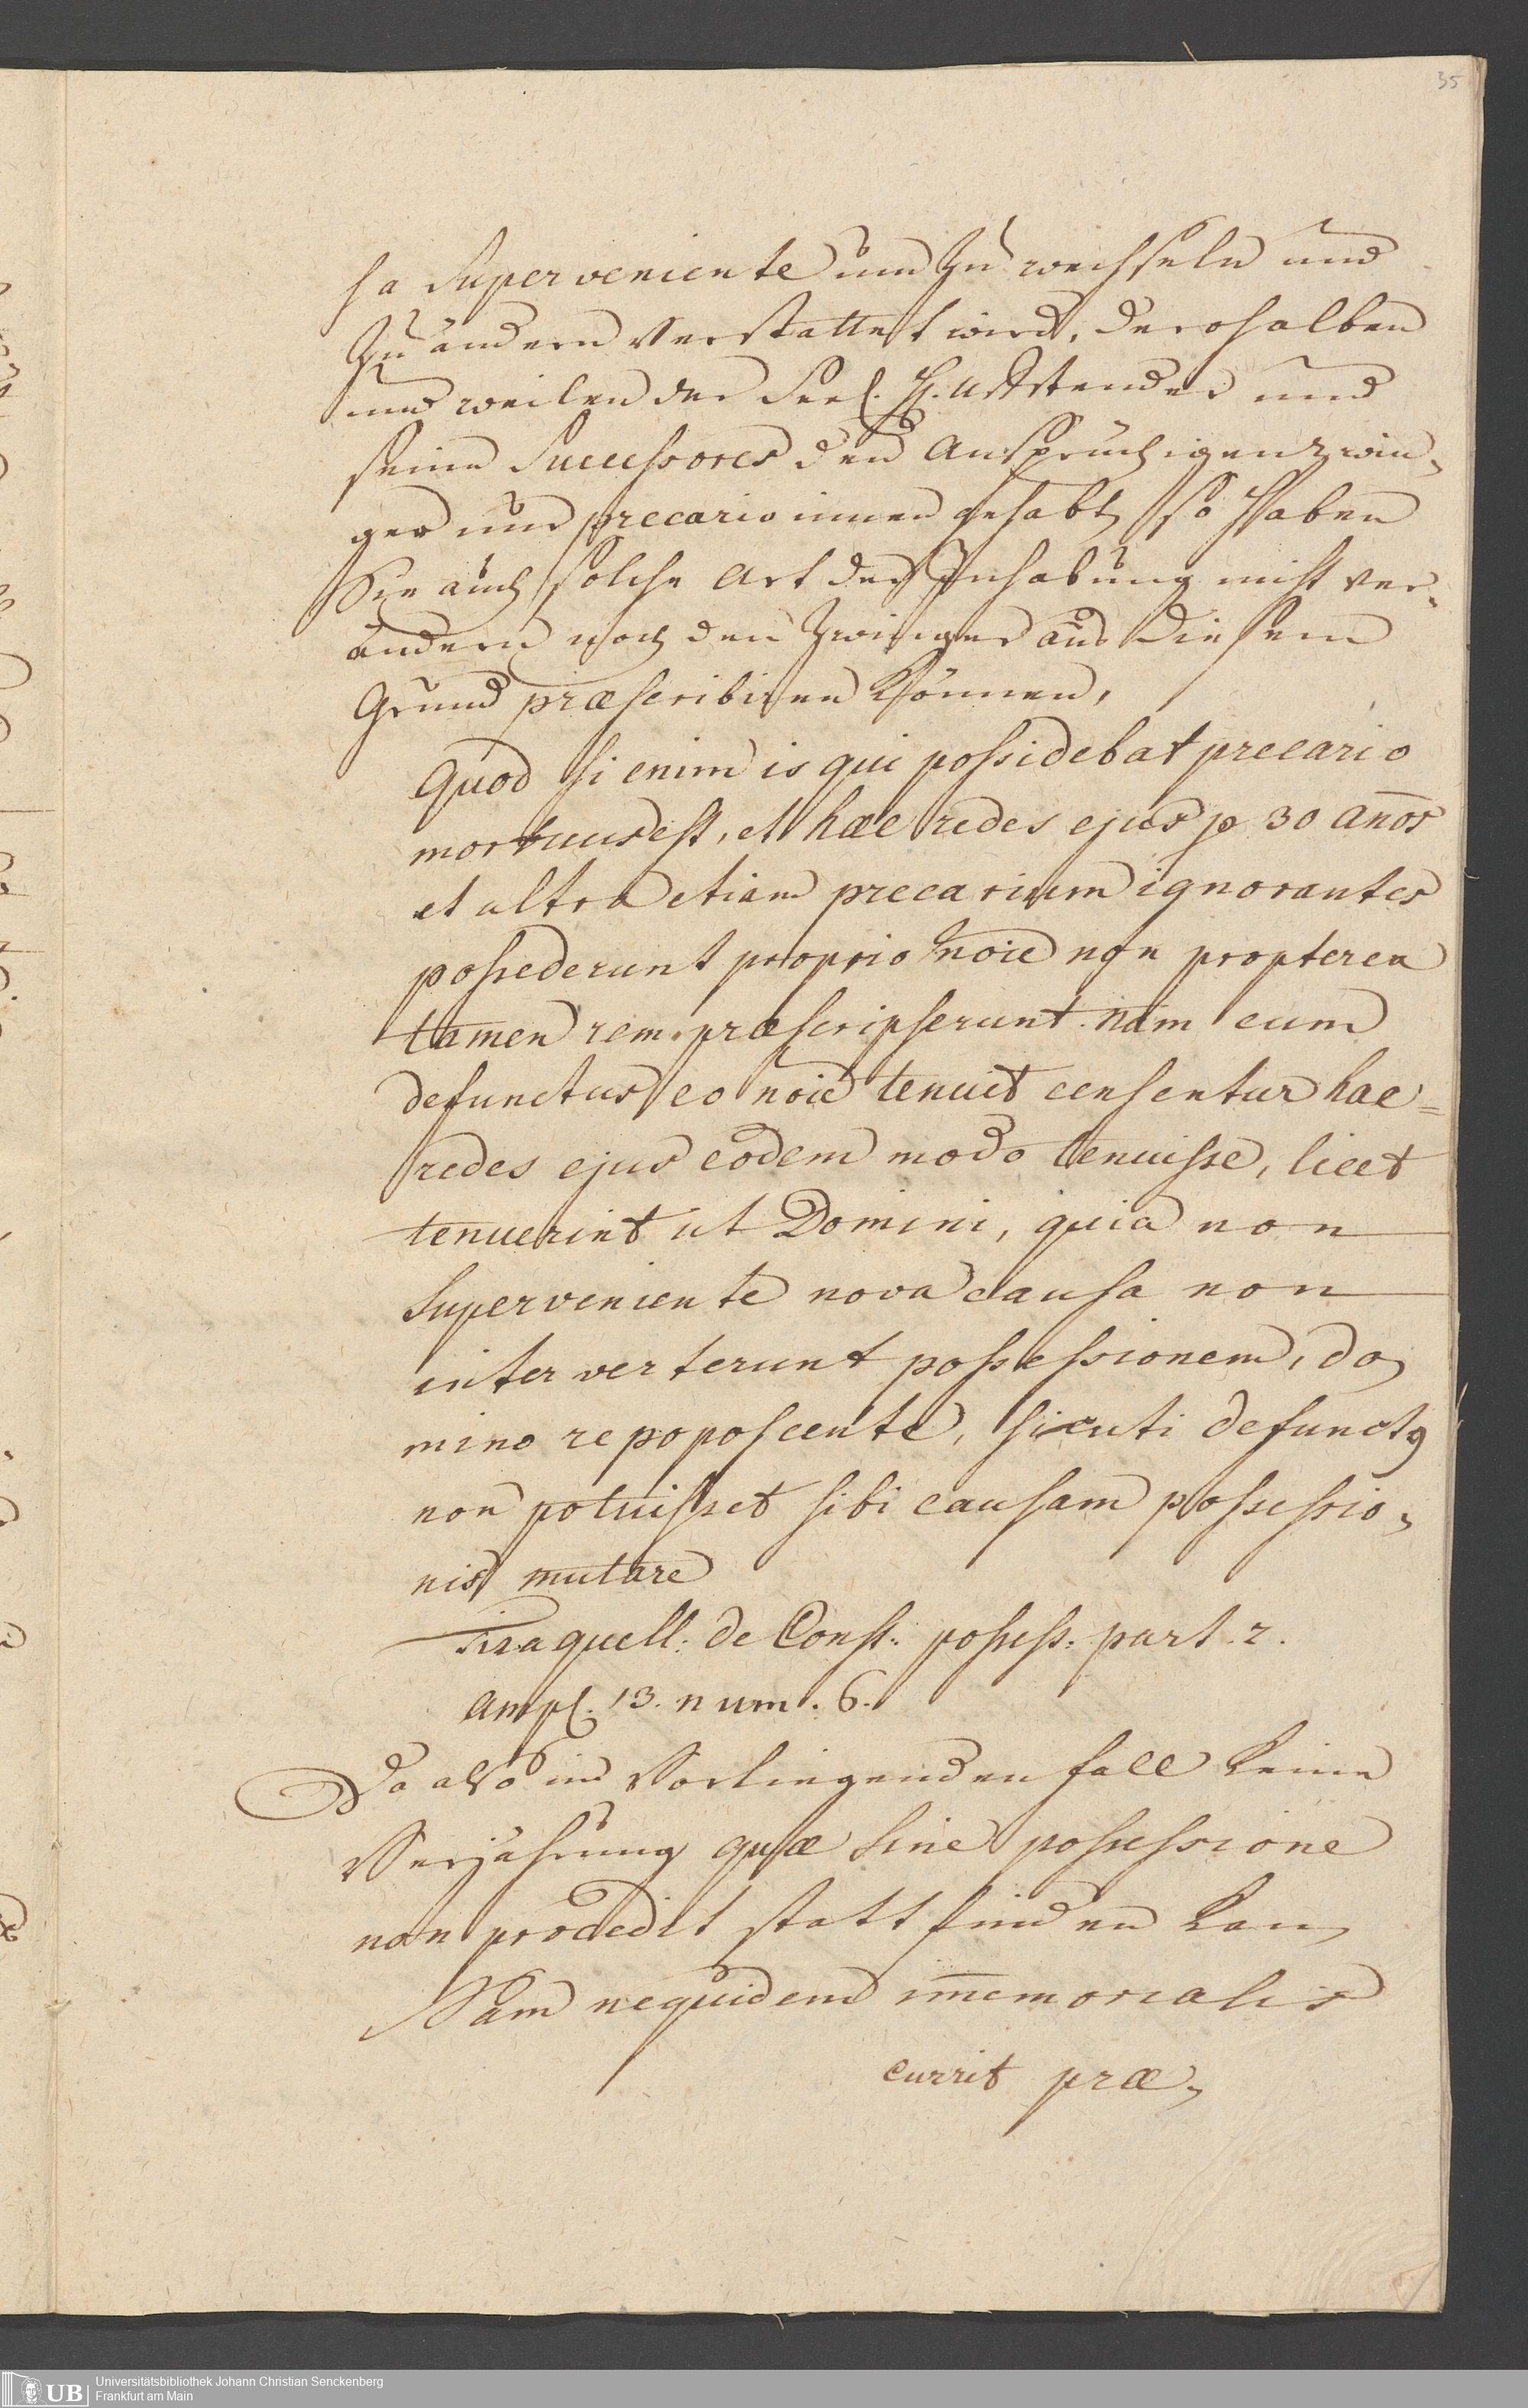 35
sa superveniente um zu wechseln und
zu ändern verstattet wird, derohalben
und weilen der Seel. H. Uffstender und
seine Successores den Ansprüchigen Zwin¬
ger nur precario innen gehabt, so haben
Sie auch solche Art der Inhabung nicht ver¬
ändern noch den Zwinger aus diesem
Grund præscribiren können,
Quod si enim is qui possidebat precario
mortuus est, et hae redes ejus p 30 an̄os
et ultra etiam precarium ignorantes
possederunt proprio noie non propterea
tamen rem præscripserunt. Nam cum
defunctus eo noie tenuit censentur hae=
redes ejus eodem modo tenuisse, licet
tenuerint ut Domini, quia non
superveniente nova causa non
interverterunt possessionem, do¬
mino repoposcente, sicuti defunctq
non potuisset sibi causam possessio¬
nis mutare
Tiraquell: de Const: possess: part. 2.
Ampl. 13. num. 6.
Da also im vorliegenden fall keine
Verjährung quæ sine possessione
non procedit statt finden kan,
Nam nequidem im̄emorialis
currit præ¬
UB
Universitätsbibliothek Johann Christian Senckenberg
Frankfurt am Main